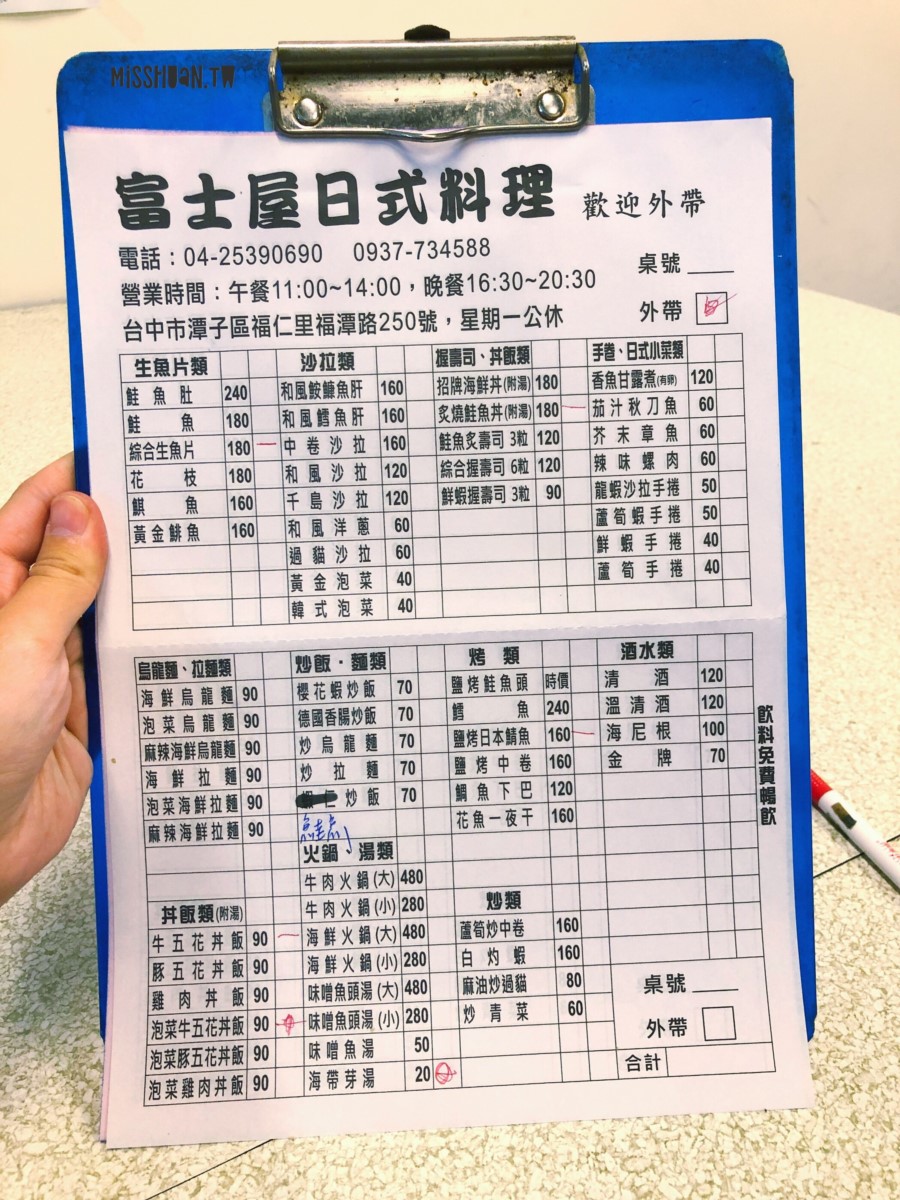 MiSSHUAN.TW
富士屋日式料理 歡迎外帶
電話：04-25390690 0937-734588
營業時間：午餐11:00~14:00，晚餐16:30~20:30
台中市潭子區福仁里福潭路250號，星期一公休
桌號
外帶
生魚片類
鮭魚肚 240
鮭魚 180
綜合生魚片 180
花枝 180
旗魚 160
黃金鯡魚 160
沙拉類
和風鮟鱇魚肝 160
和風鱈魚肝 160
中卷沙拉 160
和風沙拉 120
千島沙拉 120
和風洋蔥 60
過貓沙拉 60
黃金泡菜 40
韓式泡菜 40
握壽司、丼飯類
招牌海鮮丼(附湯) 180
炙燒鮭魚丼(附湯) 180
鮭魚炙壽司 3粒 120
綜合握壽司 6粒 120
鮮蝦握壽司 3粒 90
手卷、日式小菜類
香魚甘露煮(有卵) 120
茄汁秋刀魚 60
芥末章魚 60
辣味螺肉 60
龍蝦沙拉手捲 50
蘆筍蝦手捲 50
鮮蝦手捲 40
蘆筍手捲 40
烏龍麵、拉麵類
海鮮烏龍麵 90
泡菜烏龍麵 90
麻辣海鮮烏龍麵 90
海鮮拉麵 90
泡菜海鮮拉麵 90
麻辣海鮮拉麵 90
丼飯類(附湯)
牛五花丼飯 90
豚五花丼飯 90
雞肉丼飯 90
泡菜牛五花丼飯 90
泡菜豚五花丼飯 90
泡菜雞肉丼飯 90
炒飯・麵類
櫻花蝦炒飯 70
德國香腸炒飯 70
炒烏龍麵 70
炒拉麵 70
炒飯 70
鮭魚
火鍋、湯類
牛肉火鍋(大) 480
牛肉火鍋(小) 280
海鮮火鍋(大) 480
海鮮火鍋(小) 280
味噌魚頭湯(大) 480
味噌魚頭湯(小) 280
味噌魚湯 50
海帶芽湯 20
烤類
鹽烤鮭魚頭 時價
鱈魚 240
鹽烤日本鯖魚 160
鹽烤中卷 160
鯛魚下巴 120
花魚一夜干 160
炒類
蘆筍炒中卷 160
白灼蝦 160
麻油炒過貓 80
炒青菜 60
酒水類
清酒 120
溫清酒 120
海尼根 100
金牌 70
飲料免費暢飲
桌號
外帶
合計